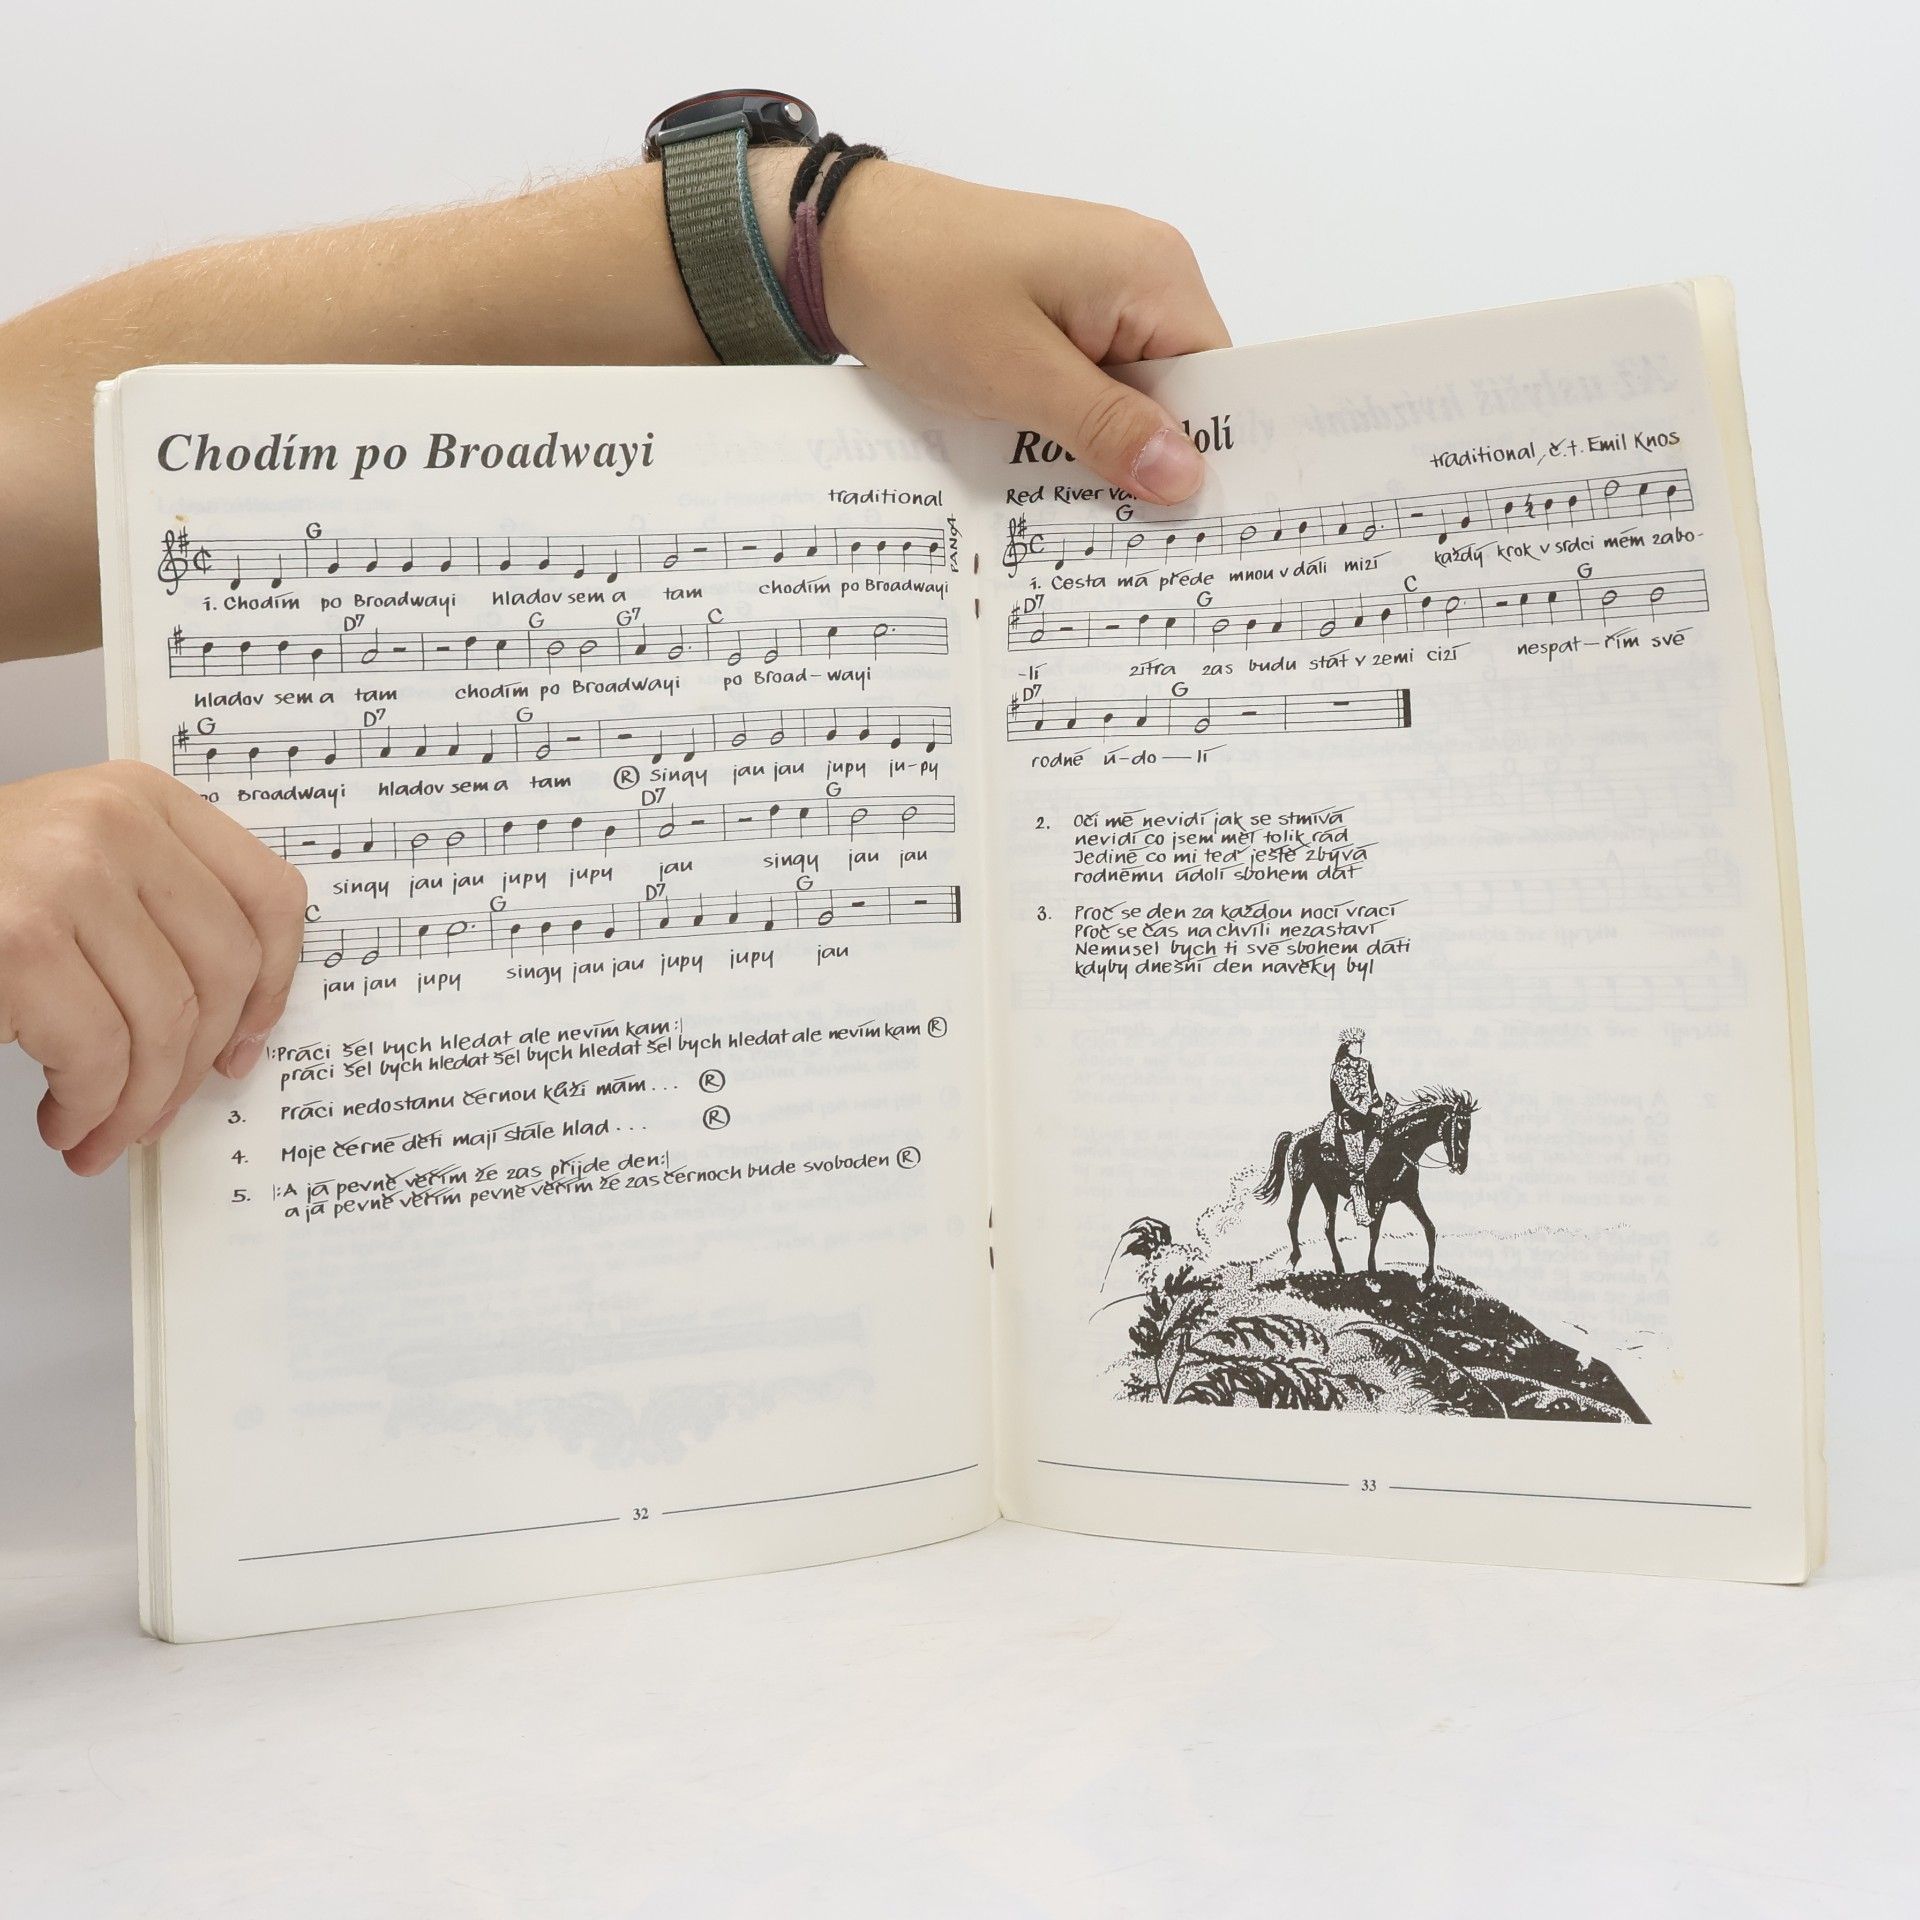 Chodím po Broadwayi
traditional
PANGA
G
1. Chodím po Broadwayi hladov sem a tam chodím po Broadwayi
D7 G G7 C
hladov sem a tam chodím po Broadwayi po Broad-wayi
G D7 G
po Broadwayi hladov sem a tam Ⓡ singy jau jau jupy ju-py
D7 G
singy jau jau jupy jupy jau singy jau jau
C G D7 G
jau jau jupy singy jau jau jupy jupy jau
|:Práci šel bych hledat ale nevím kam:|
práci šel bych hledat šel bych hledat šel bych hledat ale nevím kam Ⓡ
3. Práci nedostanu černou kůži mám... Ⓡ
4. Moje černé děti mají stále hlad... Ⓡ
5. |:A já pevně věřím že zas přijde den:|
a já pevně věřím pevně věřím že zas černoch bude svoboden Ⓡ
32
traditional, č.t. Emil Knos
Red River
G
1. Cesta má přede mnou v dáli mizí každý krok v srdci mém zabo-
D7 G C G
-lí zítra zas budu stát v zemi cizí nespat-řím své
D7 G
rodné ú-do-lí
2. Oči mé nevidí jak se stmívá
nevidí co jsem měl tolik rád
Jediné co mi teď ještě zbývá
rodnému údolí sbohem dát
3. Proč se den za každou nocí vrací
Proč se čas na chvíli nezastaví
Nemusel bych ti své sbohem dáti
kdyby dnešní den navěky byl
33